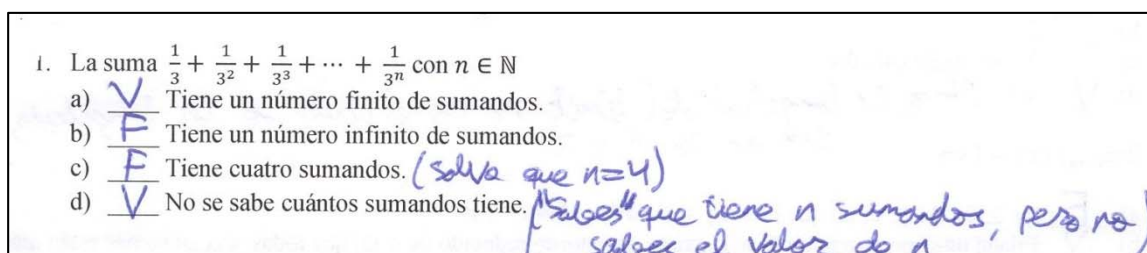 i. La suma 1/3 + 1/3² + 1/3³ + ⋯ + 1/3ⁿ con n ∈ ℕ
a) V Tiene un número finito de sumandos.
b) F Tiene un número infinito de sumandos.
c) F Tiene cuatro sumandos. (salva que n=4)
d) V No se sabe cuántos sumandos tiene. ("Sabes" que tiene n sumandos, pero no
sabes el valor de n